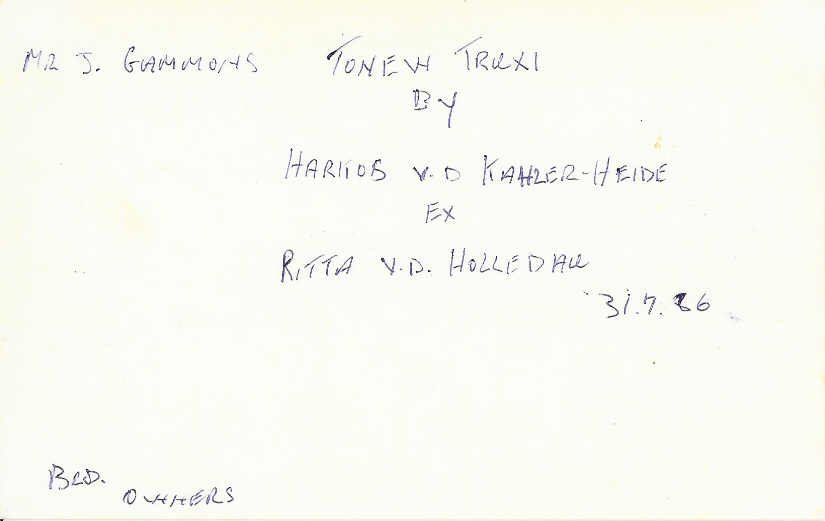 MR J. GAMMONS TONEW TRUXI
BY
HARKOS V.D KAHLER-HEIDE
EX
RITTA V.D. HOLLEDAU
31.7.86
BRD.
OWNERS